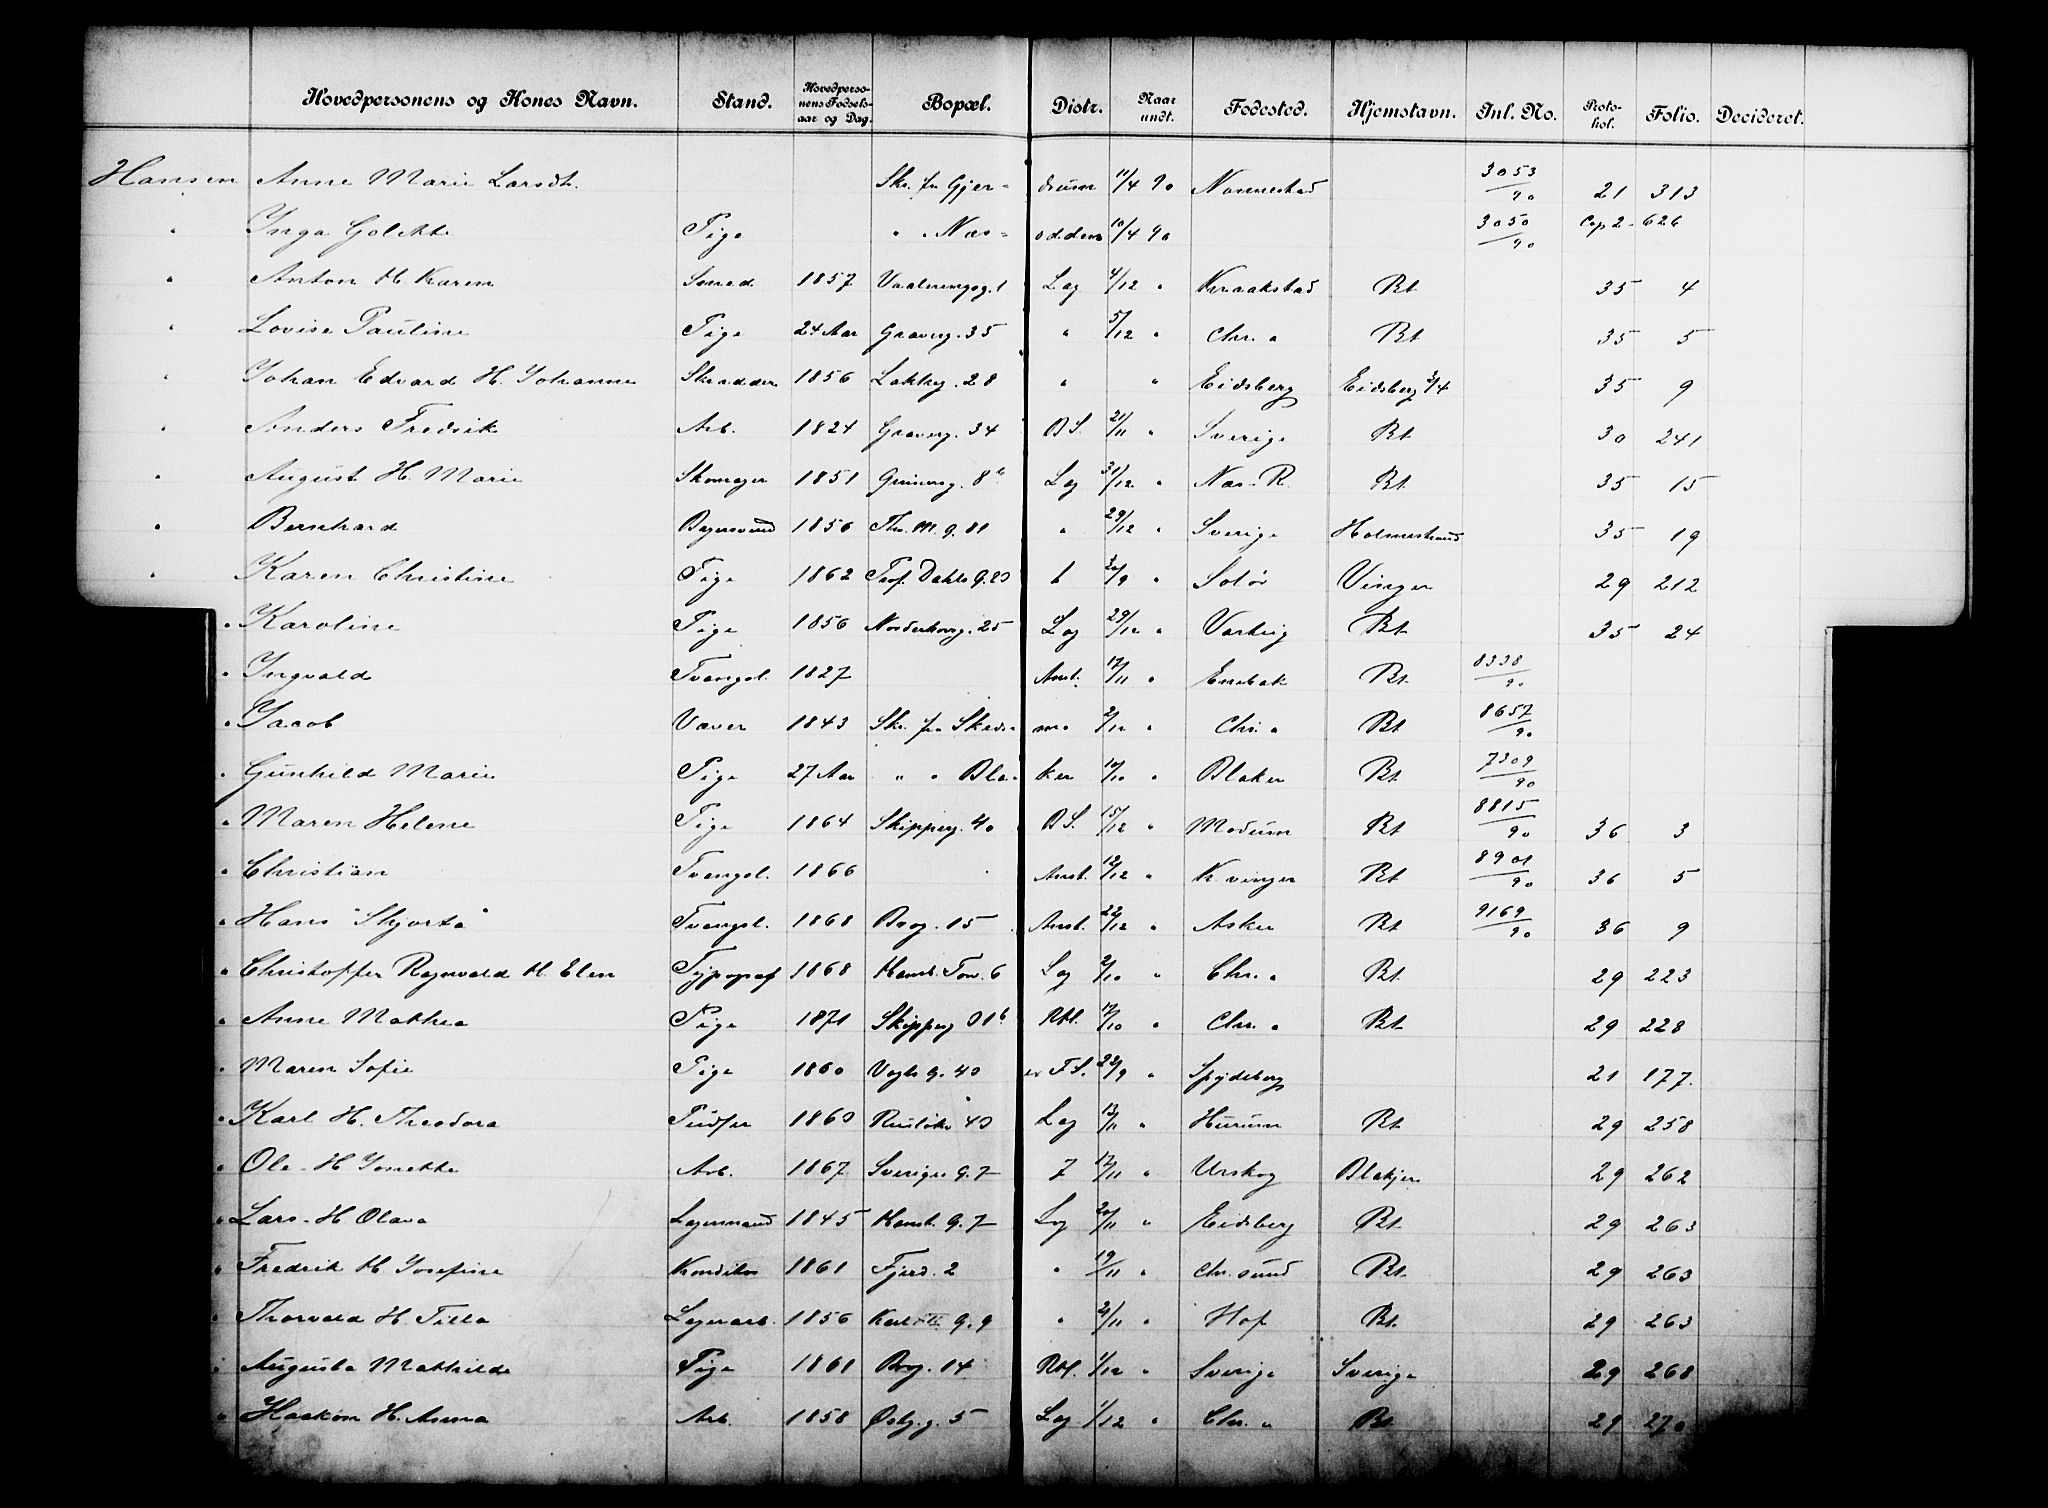 Hovedpersonens og Kones Navn. Stand. Hovedperso-nens Fødsels-aar og Dag. Bopæl. Distr. Naar undt. Fødested. Hjemstavn. Inl. No. Proto-kol. Folio. Decideret.
Hansen Anne Marie Larsdt. Skr. fra Gjer- drum 11/4 90 Nannestad 3053/90 21 313
" Inga Golette Pige " " Næs- odden 10/4 90 3050/90 Cop 2- 626
" Anton H. Karen Smed 1857 Vaalerengg. 1 Lag 4/12 " Kraakstad Bt. 35 4
" Lovise Pauline Pige 24 Aar Graverg. 35 " 5/12 " Chr.a Bt 35 5
" Johan Edvard H. Johanne Skrædder 1856 Lakkeg. 28 " " Eidsberg Eidsberg 3/4 35 9
" Anders Fredrik Arb. 1824 Graverg. 34 BS. 21/11 " Sverige Bt 30 241
" August H. Marie Skomager 1851 Grünerg. 8b Lag 31/12 " Næs-R. Bt. 35 15
" Bernhard Bagersvend 1856 Thv. M. g. 81 " 29/12 " Sverige Holmestrand 35 19
" Karen Christine Pige 1862 Prof. Dahls G. 20 /9 " Solør Vinger 29 212
" Karoline Pige 1856 Norderhovg. 25 Lag 29/12 " Vestvig Bt. 35 24
" Ingvald Tvangsl. 1827 Anst. 17/11 " Enebak Bt. 8338/90
" Jacob Væver 1843 Skr. fra Skeds- mo 2/12 " Chr.a Bt 8657/90
" Gunhild Marie Pige 27 Aar " " Bla- ker 10/10 " Blaker Bt 7309/90
" Maren Helene Pige 1864 Skipperg. 40 BS. 15/12 " Modum Bt 8815/90 36 3
" Christian Tvangsl. 1866 Anst. 12/12 " K.vinger Bt 8901/90 36 5
" Hans "Skjorta" Tvangsl. 1868 Brog. 15 Anst. 22/12 " Asker Bt 9169/90 36 9
" Christoffer Ragnvald H. Elen Typograf 1868 Hamb. Torv. 6 Lag 2/10 " Chr.a Bt. 29 223
" Anne Mathea Pige 1871 Skipperg 01b Rbl. 17/10 " Chr.a Bt 29 228
" Maren Sofie Pige 1860 Vogts G. 40 F.S. 22/9 " Spydeberg 21 177.
" Karl H. Theodora Pudser 1860 Ruseløk 40 Lag 13/11 " Hurum Bt. 29 258
" Ole - H Jonette Arb. 1867 Sveriges G. 7 7 17/11 " Urskog Blakjer 29 262
" Lars - H Olava Lagermand 1845 Hamb. G. 7 Lag 20/11 " Eidsberg Bt. 29 263
" Fredrik H. Josefine Konditor 1861 Fjerd. 2 " 19/11 " Chr.sund Bt. 29 263
" Thorvald H. Tilla Lagerarb. 1856 Karl XII G. 9 " 21/11 " Hof Bt. 29 263
" Augusta Mathilde Pige 1861 Brog. 14 Rbl. 1/12 " Sverige Sverige 29 268
" Haakon H. Anna Arb. 1858 Østg. g. 5 Lag 1/12 " Chr.a Bt 29 270